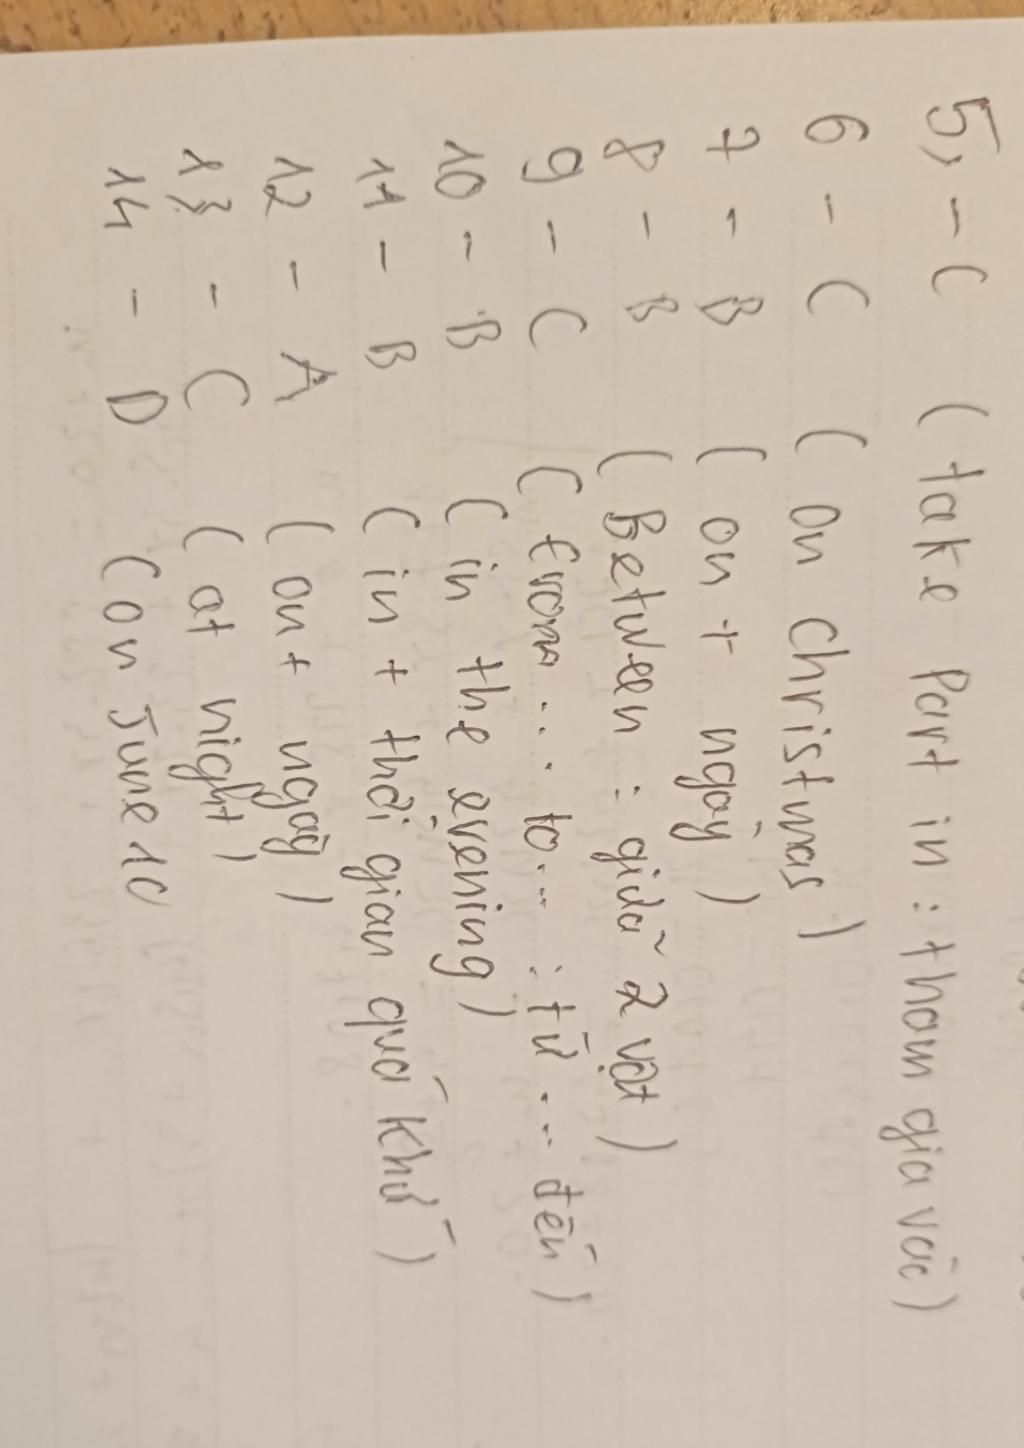 5, - C ( take Part in : tham gia vào)
6 - C ( on christmas )
7 - B ( on + ngày )
8 - B ( Between : giữa 2 vật )
9 - C ( from ... to... : từ ... đến )
10 - B ( in the evening )
11 - B ( in + thời gian quá khứ )
12 - A ( on + ngày )
13 - C ( at night )
14 - D ( on June 10